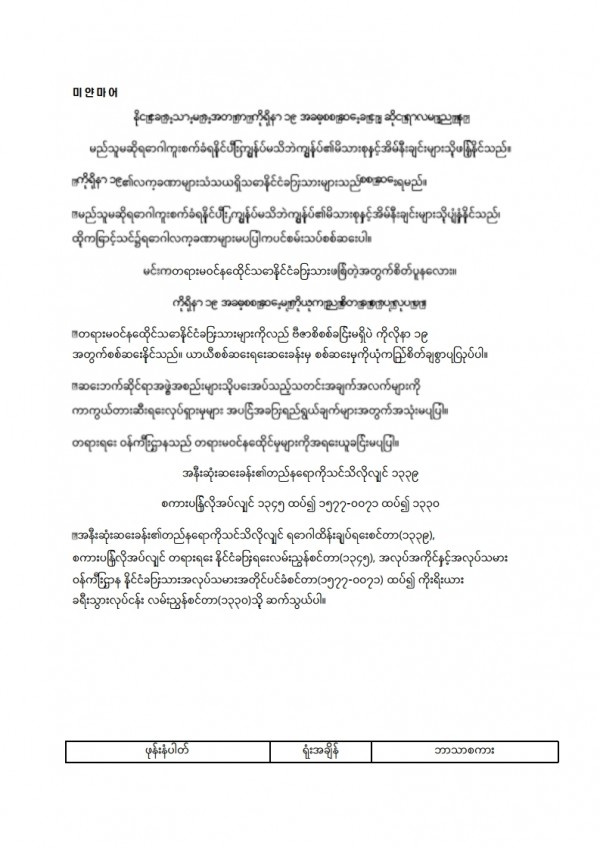 미얀마어
မည်သူမဆိုရောဂါကူးစက်ခံရနိုင်ပြီး ကျွန်ုပ်မသိဘဲကျွန်ုပ်၏မိသားစုနှင့်အိမ်နီးချင်းများသို့ဖြန့်နိုင်သည်။
ကိုရိုနာ ၁၉၏လက္ခဏာများသံသယရှိသောနိုင်ငံခြားသားများသည်စစ်ဆေးရမည်။
မည်သူမဆိုရောဂါကူးစက်ခံရနိုင်ပြီး ကျွန်ုပ်မသိဘဲကျွန်ုပ်၏မိသားစုနှင့်အိမ်နီးချင်းများသို့ပျံ့နှံ့နိုင်သည်။
ထို့ကြောင့်သင်၌ရောဂါလက္ခဏာများမပြပါကပင်စမ်းသပ်စစ်ဆေးပါ။
မင်းကတရားမဝင်နေထိုင်သောနိုင်ငံခြားသားဖြစ်တဲ့အတွက်စိတ်ပူနေလား။
တရားမဝင်နေထိုင်သောနိုင်ငံခြားသားများကိုလည် ဗီဇာစိစစ်ခြင်းမရှိပဲ ကိုလိုနာ ၁၉
အတွက်စစ်ဆေးနိုင်သည်။ ယာယီစစ်ဆေးရေးဆေးခန်းမှ စစ်ဆေးမှုကိုယုံကြည်စိတ်ချစွာပြုလုပ်ပါ။
ဆေးဘက်ဆိုင်ရာအဖွဲ့အစည်းများသို့ပေးအပ်သည့်သတင်းအချက်အလက်များကို
ကာကွယ်တားဆီးရေးလှုပ်ရှားမှုများ အပြင်အခြားရည်ရွယ်ချက်များအတွက်အသုံးမပြုပါ။
တရားရေး ဝန်ကြီးဌာနသည် တရားမဝင်နေထိုင်မှုများကိုအရေးယူခြင်းမပြုပါ။
အနီးဆုံးဆေးခန်း၏တည်နေရာကိုသင်သိလိုလျှင် ၁၃၃၉
စကားပြန်လိုအပ်လျှင် ၁၃၄၅ ထပ်၍ ၁၅၇၇-၀၀၇၁ ထပ်၍ ၁၃၃၀
အနီးဆုံးဆေးခန်း၏တည်နေရာကိုသင်သိလိုလျှင် ရောဂါထိန်းချုပ်ရေးစင်တာ(၁၃၃၉),
စကားပြန်လိုအပ်လျှင် တရားရေး နိုင်ငံခြားရေးလမ်းညွှန်စင်တာ(၁၃၄၅), အလုပ်အကိုင်နှင့်အလုပ်သမား
ဝန်ကြီးဌာန နိုင်ငံခြားသားအလုပ်သမားအတိုင်ပင်ခံစင်တာ(၁၅၇၇-၀၀၇၁) ထပ်၍ ကိုးရီးယား
ခရီးသွားလုပ်ငန်း လမ်းညွှန်စင်တာ(၁၃၃၀)သို့ ဆက်သွယ်ပါ။
ဖုန်းနံပါတ် ရုံးအချိန် ဘာသာစကား